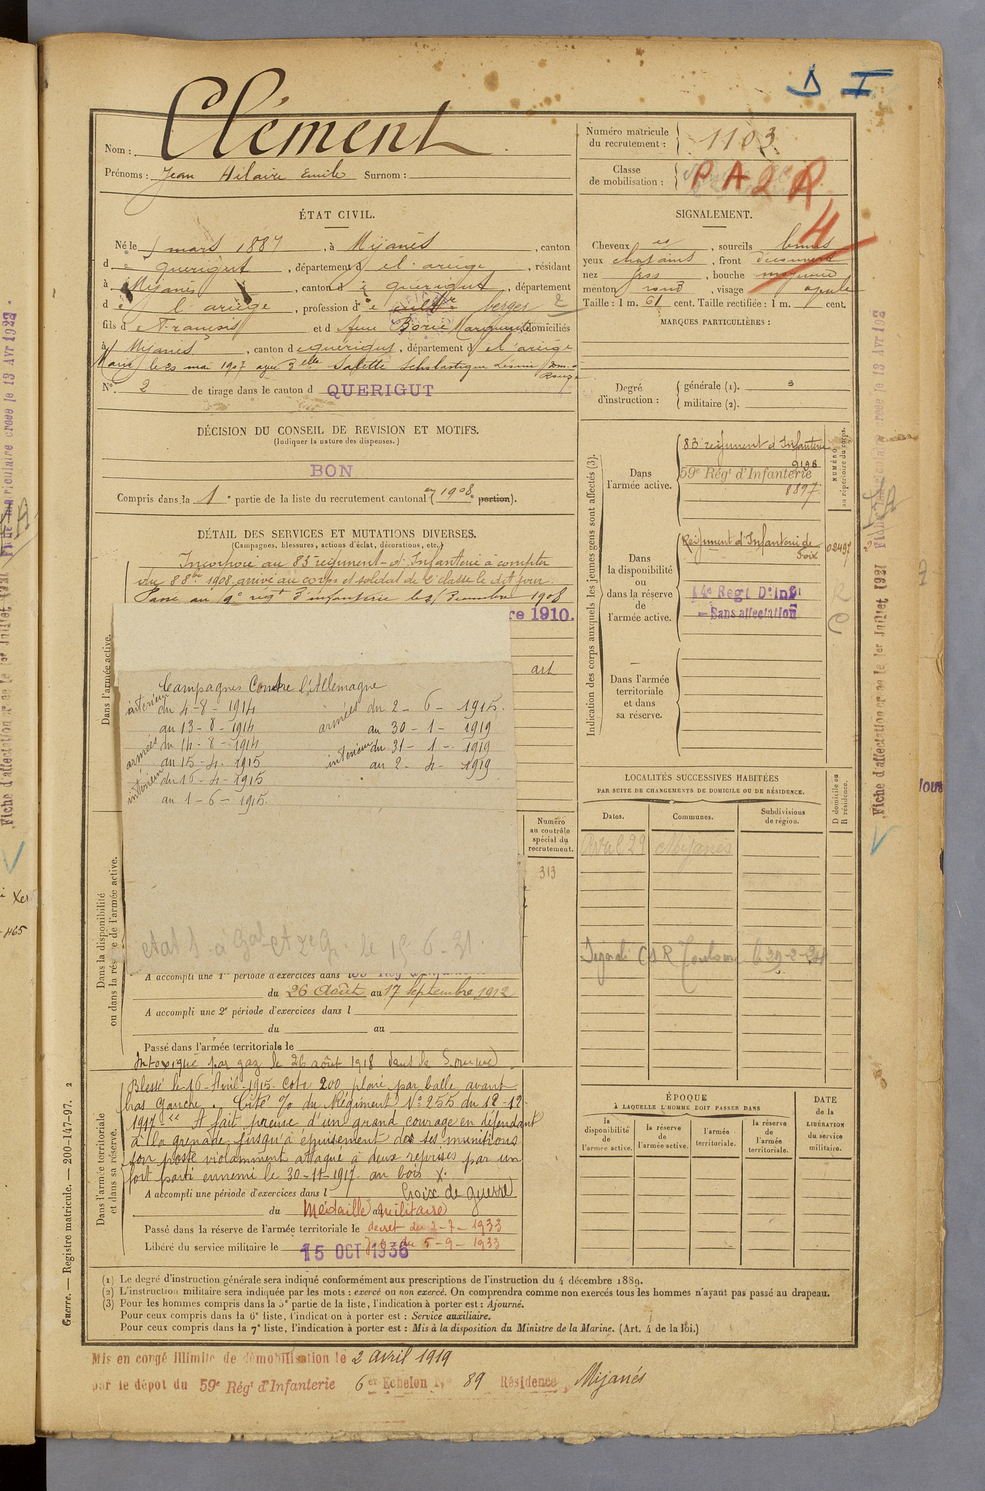 Clément
Nom :
Prénoms : Jean Hilaire Emile Surnom :
ÉTAT CIVIL.
Né le 5 mars 1887, à Mijanès, canton
d e Querigut, département d el ariège, résidant
à Mijanès, canton d e querigut, département
d e l'ariège, profession d e cultr berger 2
fils d e François et d Anne Marguerite domiciliés
à Mijanès, canton d e querigut, département d el'ariège
Marié le 23 mai 1907 avec
N° 2 de tirage dans le canton d QUERIGUT
DÉCISION DU CONSEIL DE REVISION ET MOTIFS.
(Indiquer la nature des dispenses.)
BON
Compris dans la 1e partie de la liste du recrutement cantonal en 1908 portion).
DÉTAIL DES SERVICES ET MUTATIONS DIVERSES.
(Campagnes, blessures, actions d'éclat, décorations, etc.)
Incorporé au 83 régiment d'Infanterie à compter
du 8 8bre 1908, arrivé au corps et soldat de 2e classe le dit jour.
Passé au 9e régt d'infanterie le 1908
re 1910.
art
Dans l'armée active.
Campagnes Contre l'Allemagne
intérieur du 4-8-1914
au 13-8-1914
armées du 14-8-1914
au 15-4-1915
intérieur du 16-4-1915
au 1-6-1915.
armées du 2-6-1915.
au 30-1-1919
intérieur du 31-1-1919
au 2-4-1919
le 15-6-31.
Numéro
au contrôle
spécial du
recrutement.
313
Dans la disponibilité
ou dans la réserve de l'armée active.
A accompli une 1re période d'exercices dans
du 26 Août au 17 septembre 1912
A accompli une 2e période d'exercices dans l
du au
Passé dans l'armée territoriale le
Intoxiqué par gaz le 26 août 1918 dans la Somme
Dans l'armée territoriale
et dans sa réserve.
Blessé le 16 Avril 1915. Cote 200 plaie par balle avant
bras Gauche. Cité % du Régiment N° 255 du 18-12-
1917 "A fait preuve d'un grand courage en défendant
à la grenade, jusqu'à épuisement de ses munitions
son poste violamment attaqué à deux reprises par un
fort parti ennemi le 30-11-1917 au bois X.
A accompli une période d'exercices dans l Croix de guerre
du Médaille militaire
Passé dans la réserve de l'armée territoriale le décret du 2-7-1933
du 5-9-1933
Libéré du service militaire le 15 OCT 1936
Numéro matricule
du recrutement : 1103
Classe
de mobilisation :
P A 2 R
4
SIGNALEMENT.
Cheveux , sourcils bruns
yeux chatains, front découvert
nez gros, bouche moyenne
menton rond, visage ovale
Taille : 1 m. 61 cent. Taille rectifiée : 1 m. cent.
MARQUES PARTICULIÈRES :
Degré
d'instruction :
générale (1). 3
militaire (2).
Indication des corps auxquels les jeunes gens sont affectés (3).
NUMÉRO
au répertoire du corps.
Dans
l'armée active.
83 régiment d'Infanterie
59e Régt d'Infanterie
8897
Dans
la disponibilité
ou
dans la réserve
de
l'armée active.
Régiment d'Infanterie de
Foix
02497
14e Regt D'Inf
Sans affectation
Dans l'armée
territoriale
et dans
sa réserve.
LOCALITÉS SUCCESSIVES HABITÉES
PAR SUITE DE CHANGEMENTS DE DOMICILE OU DE RÉSIDENCE.
D domicile ou
R résidence.
Dates. Communes. Subdivisions
de région.
Avril 29 Mijanès
Signalé CSR Toulouse
ÉPOQUE
À LAQUELLE L'HOMME DOIT PASSER DANS
la
disponibilité
de
l'armée active.
la réserve
de
l'armée active.
l'armée
territoriale.
la réserve
de
l'armée
territoriale.
DATE
de la
LIBÉRATION
du service
militaire.
(1) Le degré d'instruction générale sera indiqué conformément aux prescriptions de l'instruction du 4 décembre 1889.
(2) L'instruction militaire sera indiquée par les mots : exercé ou non exercé. On comprendra comme non exercés tous les hommes n'ayant pas passé au drapeau.
(3) Pour les hommes compris dans la 5e partie de la liste, l'indication à porter est : Ajourné.
Pour ceux compris dans la 6e liste, l'indication à porter est : Service auxiliaire.
Pour ceux compris dans la 7e liste, l'indication à porter est : Mis à la disposition du Ministre de la Marine. (Art. 4 de la loi.)
Guerre. — Registre matricule. — 200-147-97. 2
Mis en congé illimité de démobilisation le 2 avril 1919
par le dépôt du 59e Régt d'Infanterie 6e Echelon N° 89 Résidence, Mijanès
Fiche d'affectation créée le 1er Juillet 1921
Fiche matriculaire créée le 13 Avr 1922